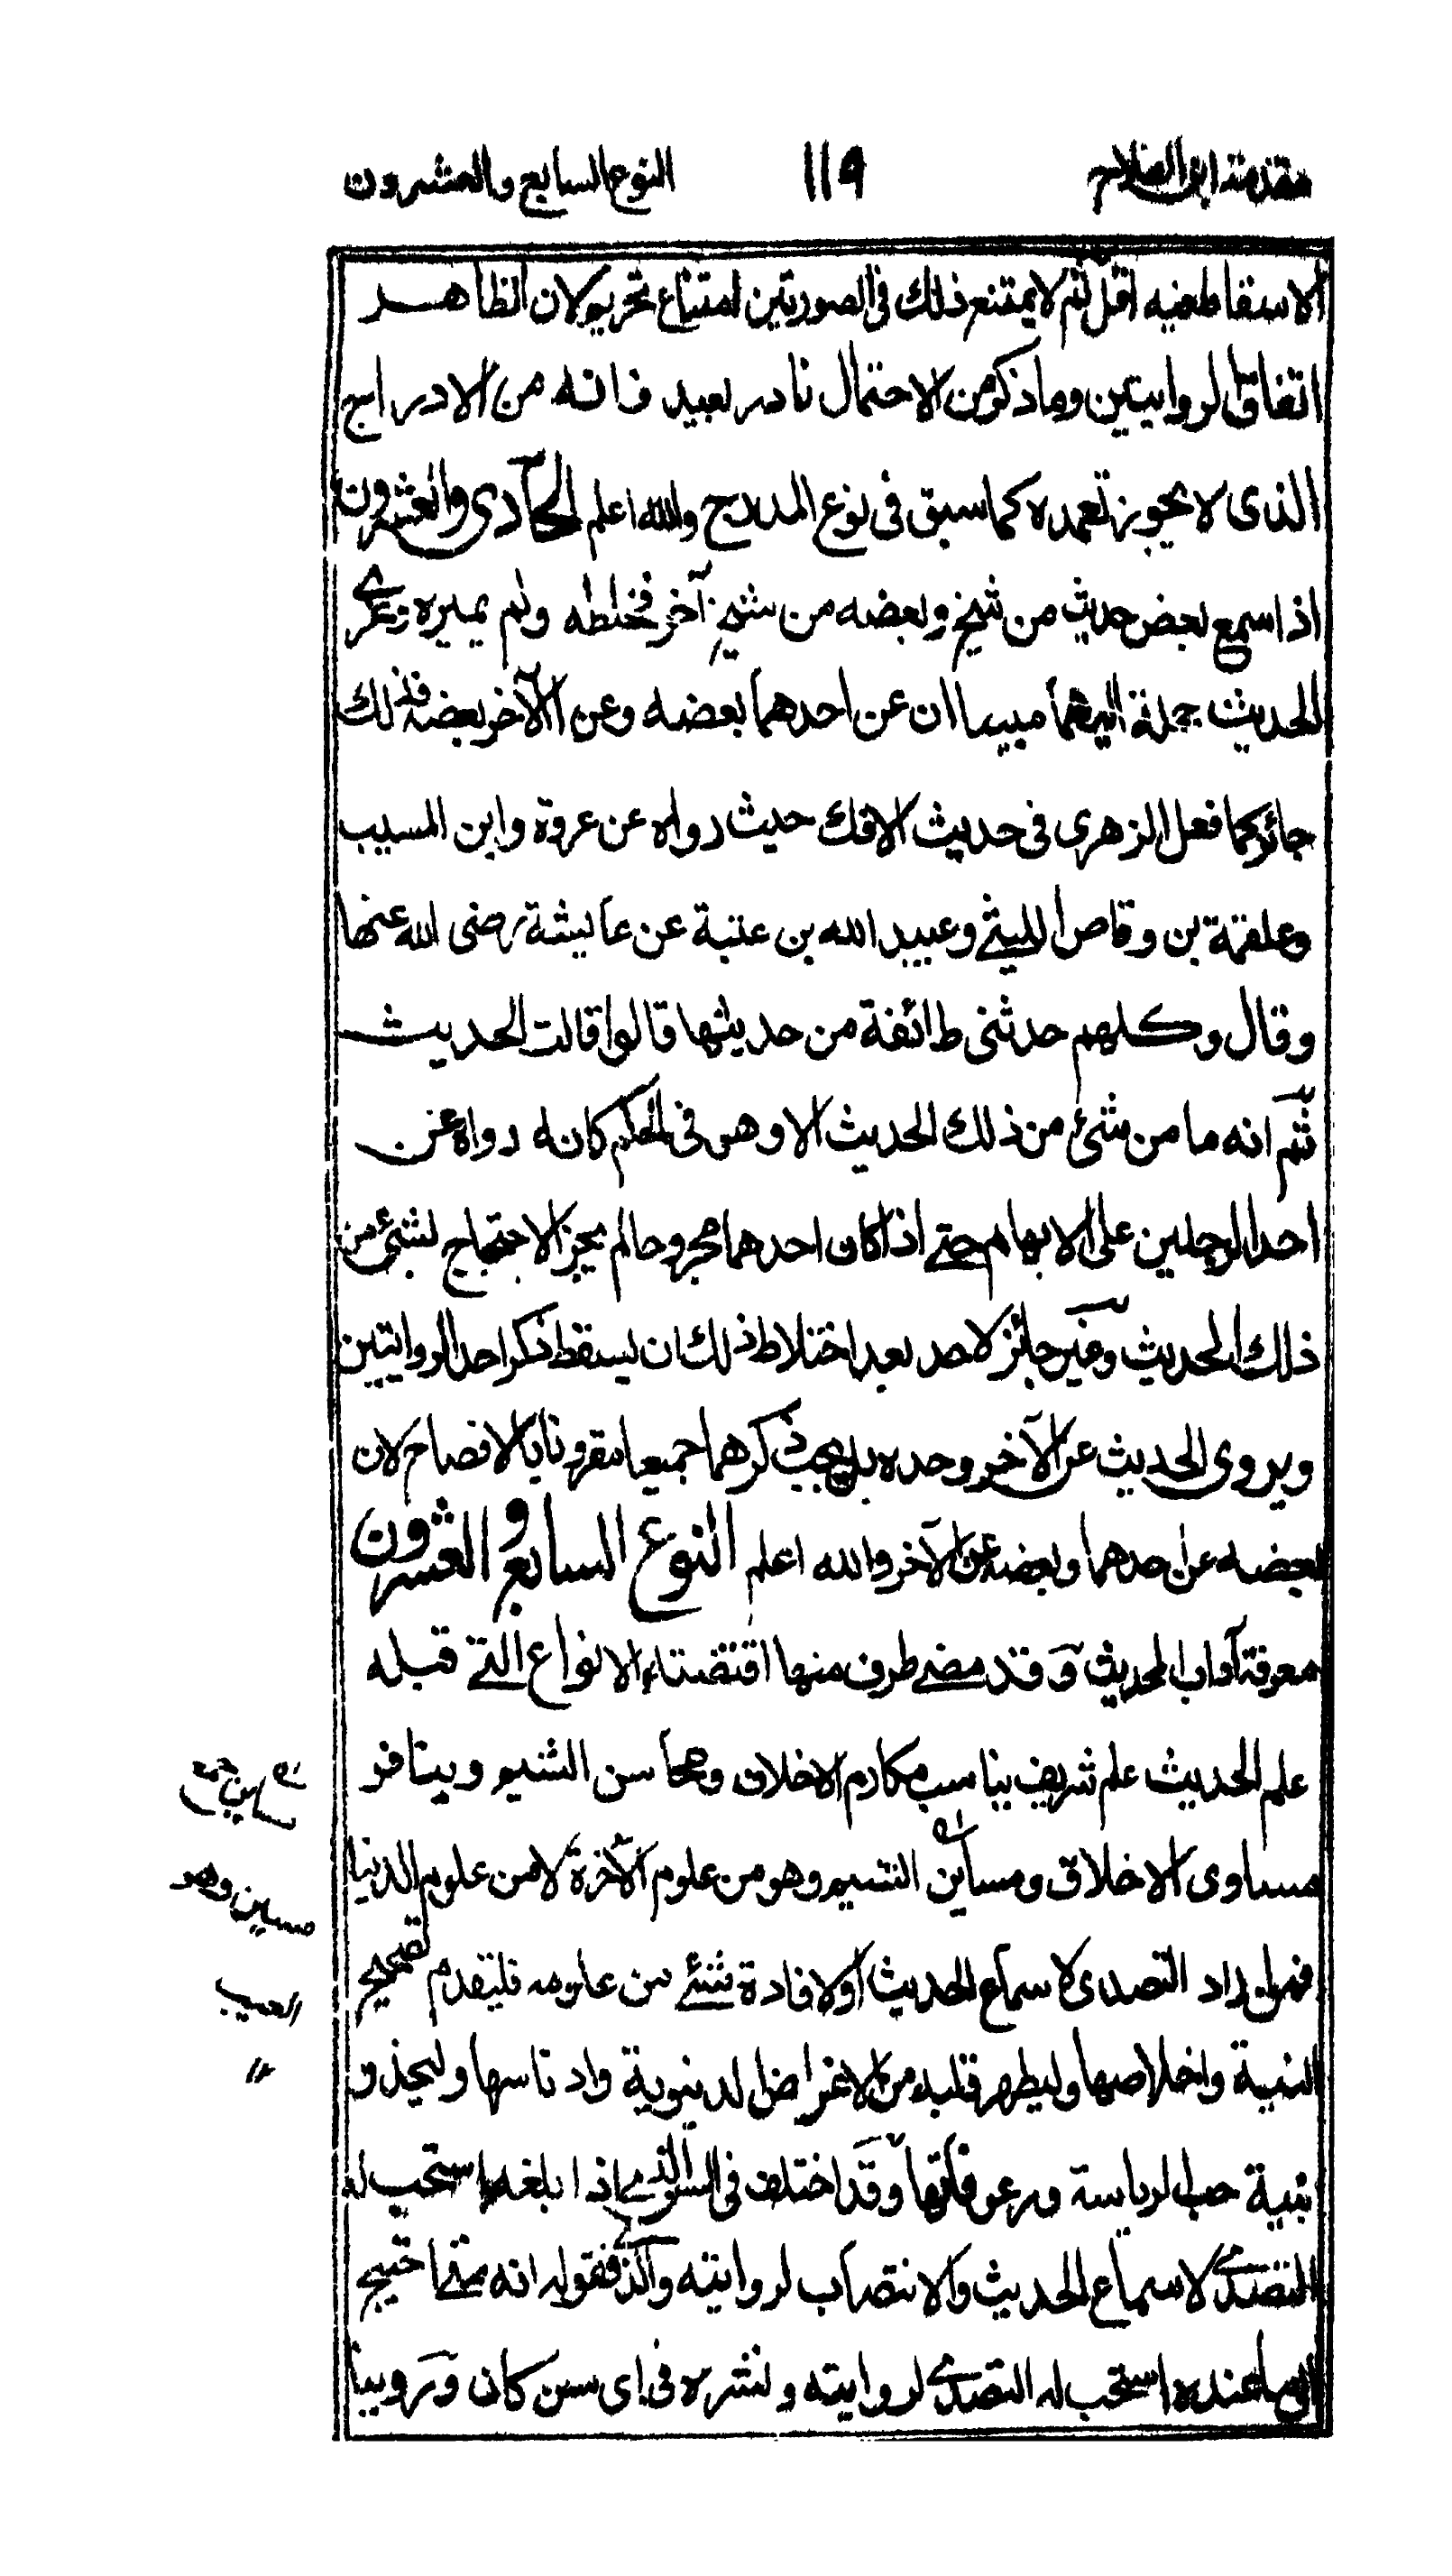 مقدمة ابن الصلاح ١١٩ النوع السابع والعشرون
الاسقاط فيه اقل ثم لا يمتنع ذلك فى الصورتين امتناع تحريم لان الظاهر
اتفاق الروايتين وما ذكر من الاحتمال نادر بعيد فانه من الادراج
الذى لا يجوز تعمده كما سبق فى نوع المدرج والله اعلم الحادى والعشرون
اذا سمع بعض حديث من شيخ وبعضه من شيخ آخر فخلطه ولم يميزه وعزى
الحديث جملة اليهما مبينا ان عن احدهما بعضه وعن الآخر بعضه فذلك
جائز كما فعل الزهرى فى حديث الافك حيث رواه عن عروة وابن المسيب
وعلقمة بن وقاص الليثى وعبيد الله بن عتبة عن عايشة رضى الله عنها
وقال وكلهم حدثنى طائفة من حديثها قالوا قالت الحديث
ثم انه ما من شئ من ذلك الحديث الا وهو فى الحكم كانه رواه عن
احد الرجلين على الابهام حتى اذا كان احدهما مجروحا لم يجز الاحتجاج بشئ من
ذلك الحديث وغير جائز لاحد بعد اختلاط ذلك ان يسقط ذكر احد الروايتين
ويروى الحديث عن الآخر وحده بل يجب ذكرهما جميعا مقرونا بالافصاح لان
بعضه عن احدهما وبعضه عن الآخر والله اعلم النوع السابع والعشرون
معرفة آداب المحدث وقد مضى طرف منها اقتضته الانواع التى قبله
علم الحديث علم شريف يناسب مكارم الاخلاق ومحاسن الشيم وينافر
مساوى الاخلاق ومساين الشيم وهو من علوم الآخرة لا من علوم الدنيا
فمن اراد التصدى لاسماع الحديث او لافادة شئ من علومه فليقدم تصحيح
النية واخلاصها وليطهر قلبه من الاغراض الدنيوية وادناسها وليحذر
بلية حب الرياسة ورعوناتها وقد اختلف فى السن الذى اذا بلغه استحب له
التصدى لاسماع الحديث والانتصاب لروايته والذى نقوله انه متى احتيج
الى ما عنده استحب له التصدى لروايته ونشره فى اى سن كان وروينا
مساين جمع
مسين وهو
العيب
١٢